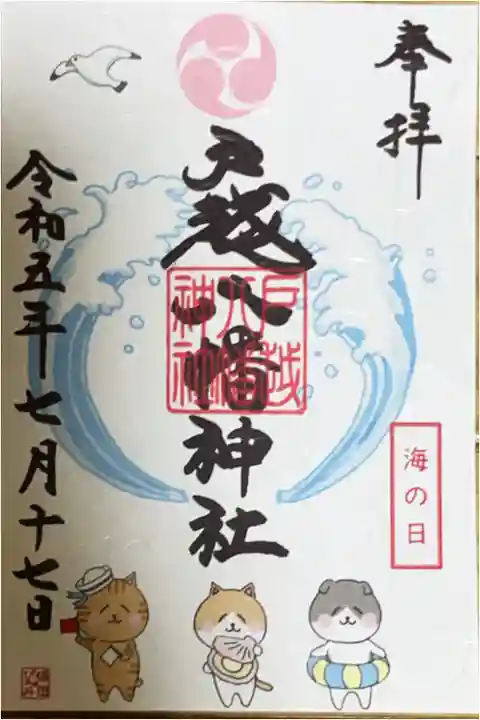 奉拝
戸越八幡神社
戸越
八幡
神社
海の日
令和五年七月十七日